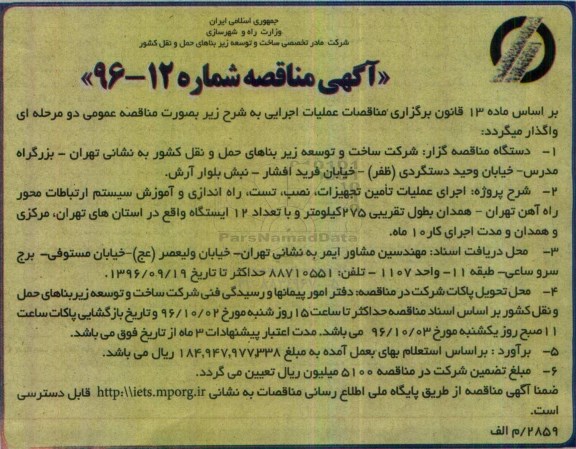 جمهوری اسلامی ایران
وزارت راه و شهرسازی
شرکت مادر تخصصی ساخت و توسعه زیر بناهای حمل و نقل کشور
«آگهی مناقصه شماره ۱۲-۹۶»
بر اساس ماده ۱۳ قانون برگزاری مناقصات عملیات اجرایی به شرح زیر بصورت مناقصه عمومی دو مرحله ای
واگذار میگردد:
۱- دستگاه مناقصه گزار: شرکت ساخت و توسعه زیر بناهای حمل و نقل کشور به نشانی تهران - بزرگراه
مدرس- خیابان وحید دستگردی (ظفر) - خیابان فرید افشار - نبش بلوار آرش.
۲- شرح پروژه: اجرای عملیات تأمین تجهیزات، نصب، تست، راه اندازی و آموزش سیستم ارتباطات محور
راه آهن تهران - همدان بطول تقریبی ۲۷۵کیلومتر و با تعداد ۱۲ ایستگاه واقع در استان های تهران، مرکزی
و همدان و مدت اجرای کار۱۰ ماه.
ParsNamadData
۳- محل دریافت اسناد: مهندسین مشاور ایمر به نشانی تهران- خیابان ولیعصر (عج)-خیابان مستوفی- برج
سرو ساعی- طبقه ۱۱- واحد ۱۱۰۷ - تلفن: ۸۸۷۱۰۵۵۱ حداکثر تا تاریخ ۱۳۹۶/۰۹/۱۹.
۴- محل تحویل پاکات شرکت در مناقصه: دفتر امور پیمانها و رسیدگی فنی شرکت ساخت و توسعه زیربناهای حمل
و نقل کشور بر اساس اسناد مناقصه حداکثر تا ساعت ۱۵ روز شنبه مورخ ۹۶/۱۰/۰۲ و تاریخ بازگشایی پاکات ساعت
۱۱ صبح روز یکشنبه مورخ ۹۶/۱۰/۰۳ می باشد. مدت اعتبار پیشنهادات ۳ ماه از تاریخ فوق می باشد.
۵- برآورد : براساس استعلام بهای بعمل آمده به مبلغ ۱۸۴,۹۴۷,۹۷۷,۳۳۸ ریال می باشد.
۶- مبلغ تضمین شرکت در مناقصه ۵۱۰۰ میلیون ریال تعیین می گردد.
ضمنا آگهی مناقصه از طریق پایگاه ملی اطلاع رسانی مناقصات به نشانی http:\\iets.mporg.ir قابل دسترسی
است.
۲۸۵۹/م الف